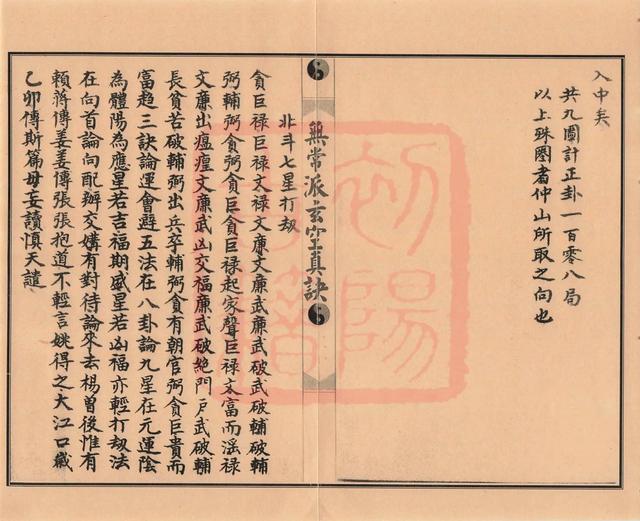 入中矣
共九圖計正卦一百零八局
以上硃圈者仲山所取之向也
無常派玄空真訣
北斗七星打刼
貪巨祿巨祿文祿文廉文廉武廉武破武破輔破輔
弼輔弼貪弼貪巨貪巨祿起家聲巨祿文富而滛祿
文廉出瘟㾮文廉武凶交福廉武破絕門戶武破輔
長貧苦破輔弼出兵卒輔弼貪有朝官弼貪巨貴而
富超三訣論運會避五法在八卦論九星在元運陰
為體陽為應星若吉福期威星若凶福亦輕打刼法
在向首論向配辦交媾有對待論來去楊曾後惟有
賴蔣傳姜姜傳張張抱道不輕言姚得之大江口歲
乙卯傳斯篇毋妄讀慎天譴
初陽書籍